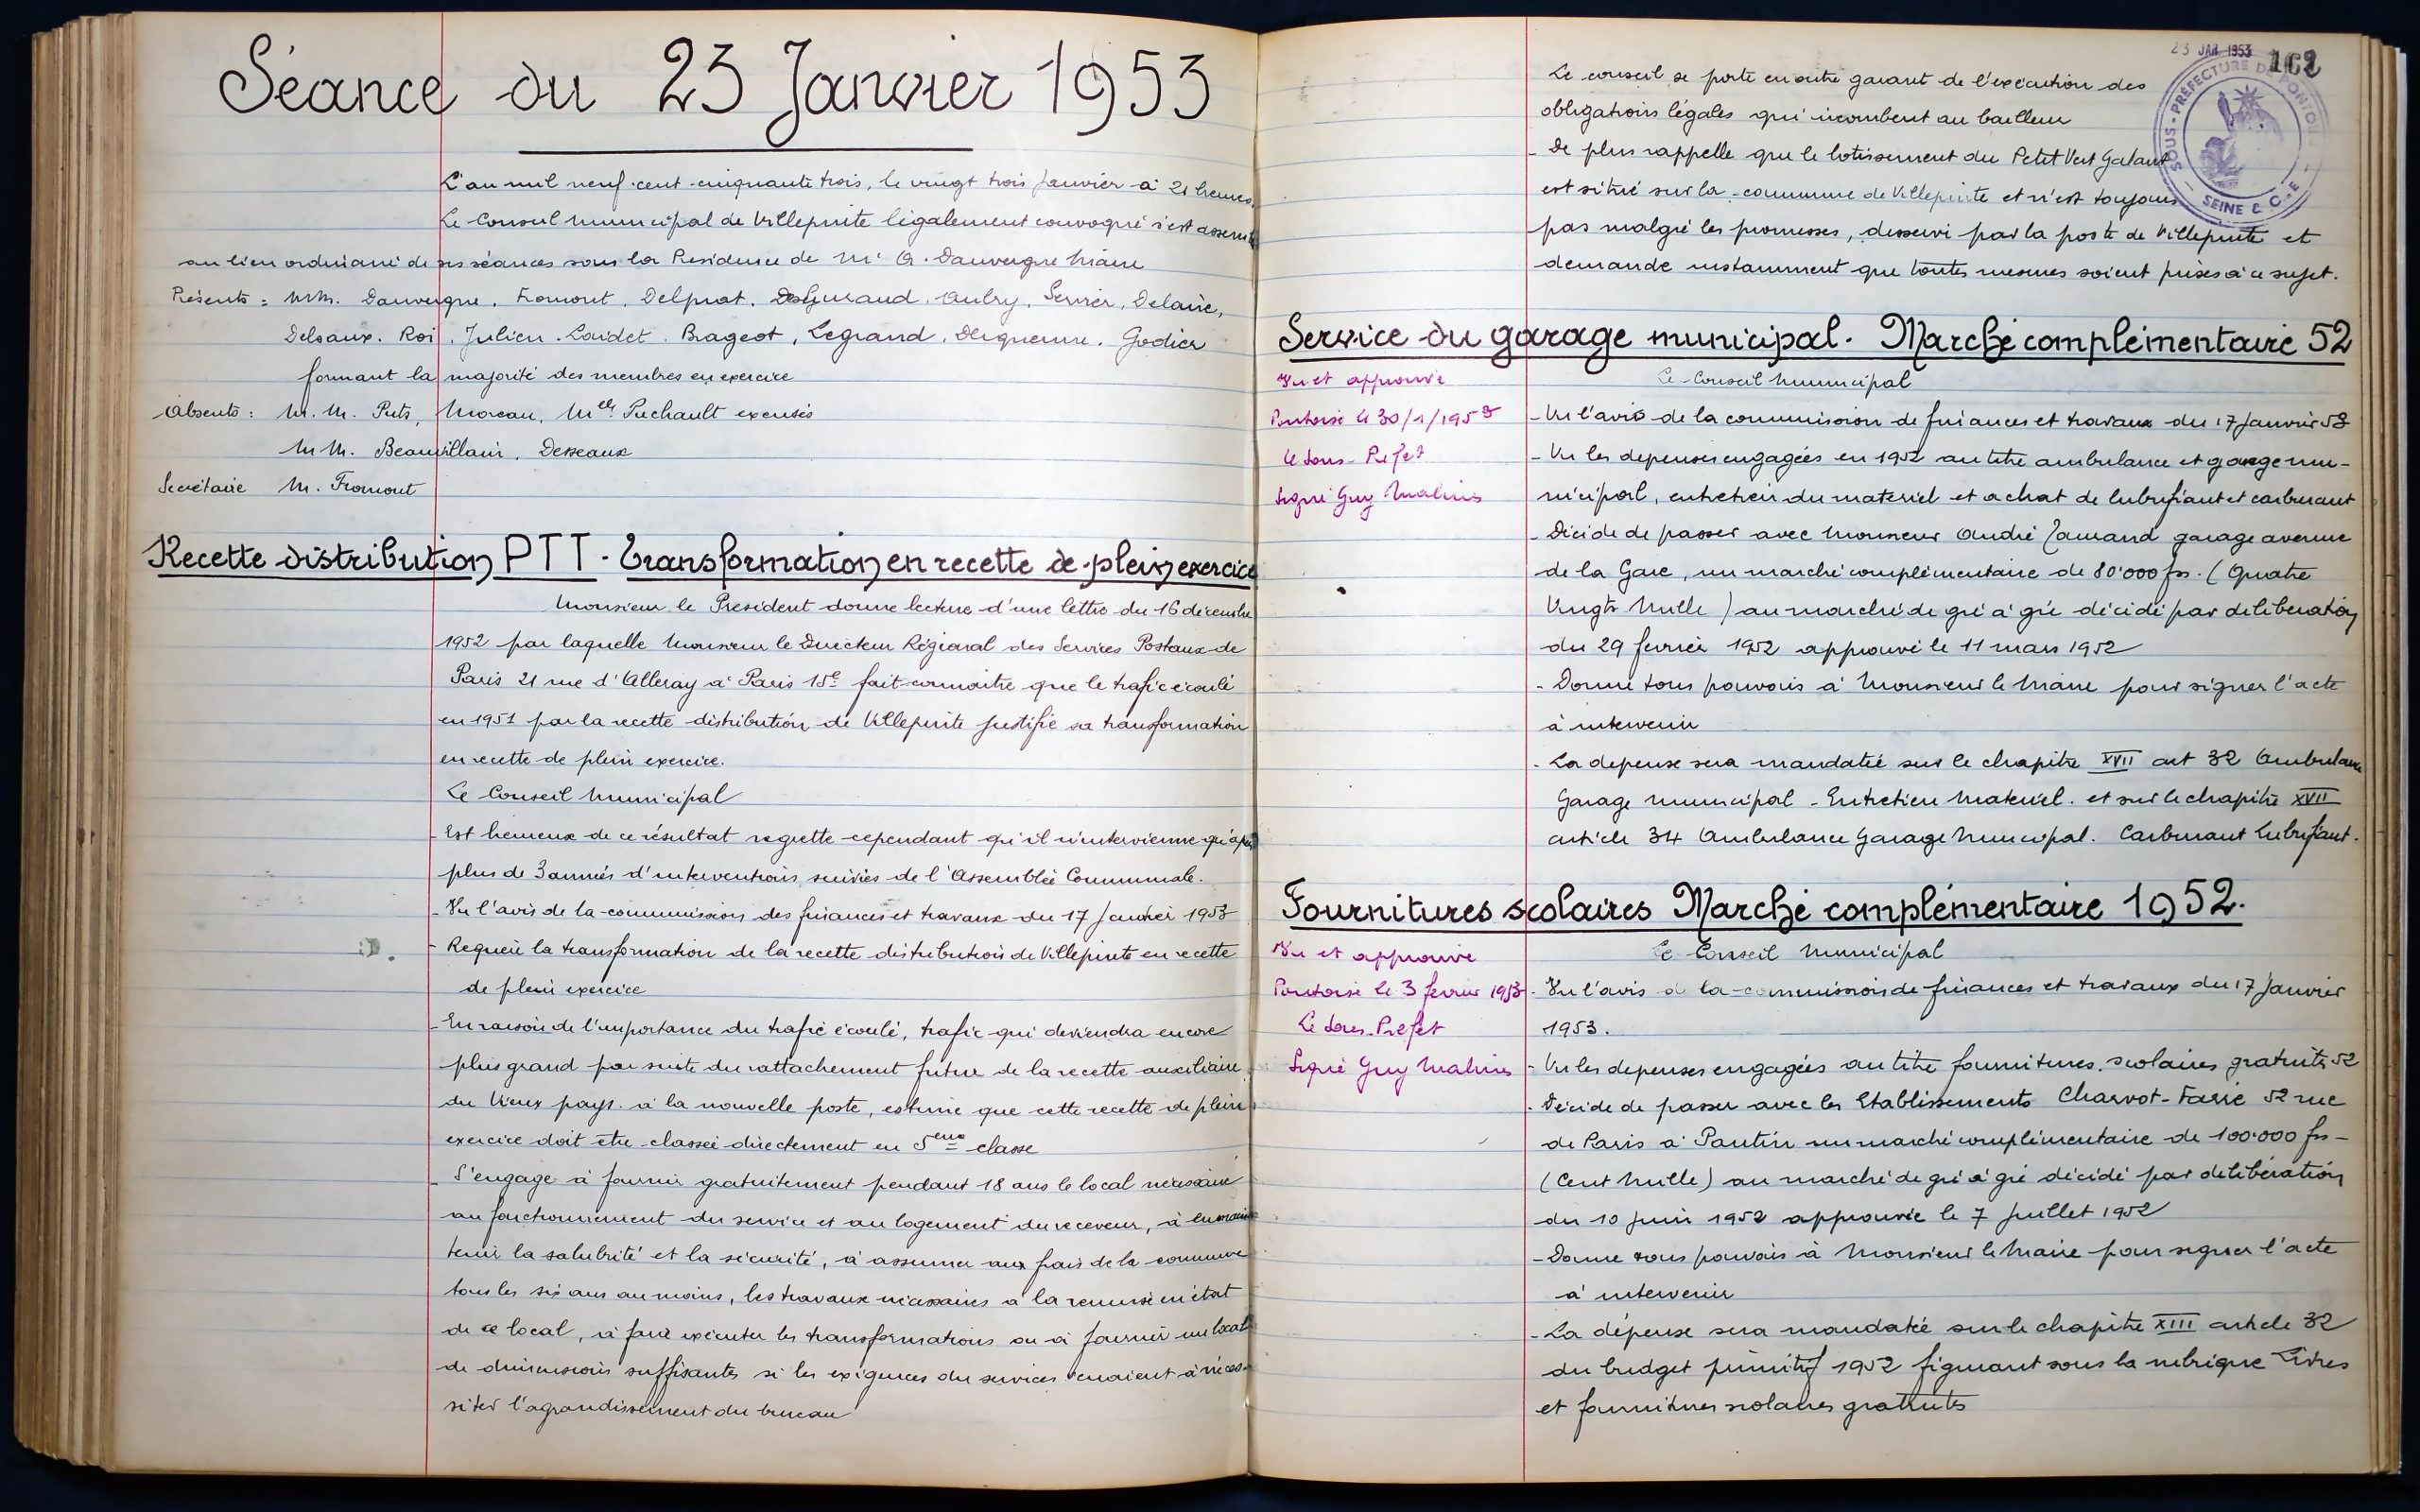 Séance du 23 Janvier 1953
L'an mil neuf cent cinquante trois, le vingt trois Janvier à 21 heures.
Le Conseil Municipal de Villepinte légalement convoqué s'est assemblé
au lieu ordinaire de ses séances sous la Présidence de Mr G. Dauvergne Maire
Présents : MM. Dauvergne, Fromont, Delprat, Aubry, Servier, Delaire,
Delsaux. Roi. Julien. Loidet. Brageot, Legrand, Derquenne. Godier
formant la majorité des membres en exercice
Absents : M. M. Puts, Moreau, Melle Puchault excusés
MM. Beauvillain, Desseaux
Secrétaire M. Fromont
Recette distribution PTT - Transformation en recette de plein exercice
Monsieur le Président donne lecture d'une lettre du 16 décembre
1952 par laquelle Monsieur le Directeur Régional des Services Postaux de
Paris 21 rue d'Alleray à Paris 15e fait connaitre que le trafic écoulé
en 1951 par la recette distribution de Villepinte justifie sa transformation
en recette de plein exercice.
Le Conseil Municipal
- Est heureux de ce résultat regrette cependant qu'il n'intervienne qu'après
plus de 3 années d'interventions suivies de l'Assemblée Communale.
- Vu l'avis de la commission des finances et travaux du 17 Janvier 1953
- Requiert la transformation de la recette distribution de Villepinte en recette
de plein exercice
- En raison de l'importance du trafic écoulé, trafic qui deviendra encore
plus grand par suite du rattachement futur de la recette auxiliaire
du Vieux pays à la nouvelle poste, estime que cette recette de plein
exercice doit être classée directement en 5eme classe
- S'engage à fournir gratuitement pendant 18 ans le local nécessaire
au fonctionnement du service et au logement du receveur, à en main
tenir la salubrité et la sécurité, à assumer aux frais de la commune
tous les six ans au moins, les travaux nécessaires à la remise en état
de ce local, à faire exécuter les transformations ou à fournir un local
de dimensions suffisantes si les exigences du services venaient à néces-
siter l'agrandissement du bureau
23 JAN 1953
162
SOUS-PRÉFECTURE DE PONTOISE
SEINE & OISE
Le conseil se porte en outre garant de l'exécution des
obligations légales qui incombent au bailleur
- De plus rappelle que le lotissement du Petit Vert Galant
est situé sur la commune de Villepinte et n'est toujours
pas malgré les promesses, desservi par la poste de Villepinte et
demande instamment que toutes mesures soient prises à ce sujet.
Service du garage municipal. Marché complémentaire 52
Vu et approuvé
Pontoise le 30/1/1953
le Sous-Préfet
Signé Guy Malines
Le Conseil Municipal
- Vu l'avis de la commission de finances et travaux du 17 Janvier 53
- Vu les depenses engagées en 1952 au titre ambulance et garage mu-
nicipal, entretien du materiel et achat de lubrifiant et carburant
- Décide de passer avec Monsieur André garage avenue
de la Gare, un marché complémentaire de 80.000 frs. (Quatre
Vingts Mille) au marché de gré à gré décidé par deliberation
du 29 fevrier 1952 approuvé le 11 mars 1952
- Donne tous pouvoirs à Monsieur le Maire pour signer l'acte
à intervenir
- La depense sera mandatée sur le chapitre XVII art 32 Ambulance
Garage municipal - Entretien Matériel. et sur le chapitre XVII
article 34 Ambulance Garage Municipal. Carburant Lubrifiant.
Fournitures scolaires Marché complémentaire 1952.
Vu et approuvé
Pontoise le 3 fevrier 1953
Le Sous-Préfet
Signé Guy Malines
Le Conseil Municipal
- Vu l'avis de la commission de finances et travaux du 17 Janvier
1953.
- Vu les depenses engagées au titre fournitures scolaires gratuites 52
- Décide de passer avec les Etablissements Charvot-Fasie 52 rue
de Paris à Pantin un marché complémentaire de 100.000 frs -
(Cent Mille) au marché de gré à gré décidé par delibération
du 10 Juin 1952 approuvée le 7 Juillet 1952
- Donne tous pouvoirs à Monsieur le Maire pour signer l'acte
à intervenir
- La dépense sera mandatée sur le chapitre XIII article 32
du budget primitif 1952 figurant sous la rubrique Livres
et fournitures scolaires gratuites